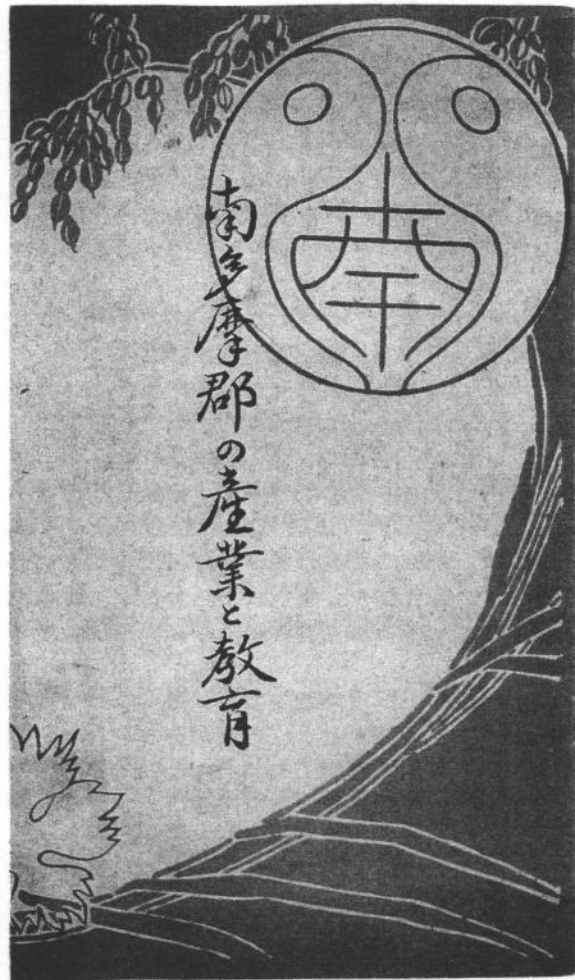 南多摩郡の産業と教育